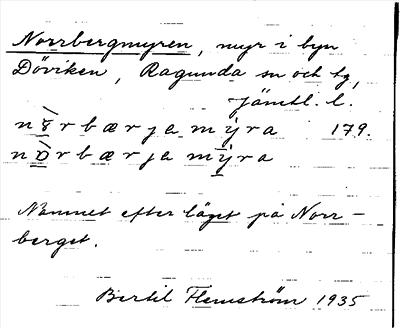 Norrbergmyren, myr i byn
Döviken, Ragunda sn och tg,
Jämtl. l.
nòrbærjamýra 179.
nòrbærjamýra
Namnet efter läget på Norr-
berget.
Bertil Flemström 1935